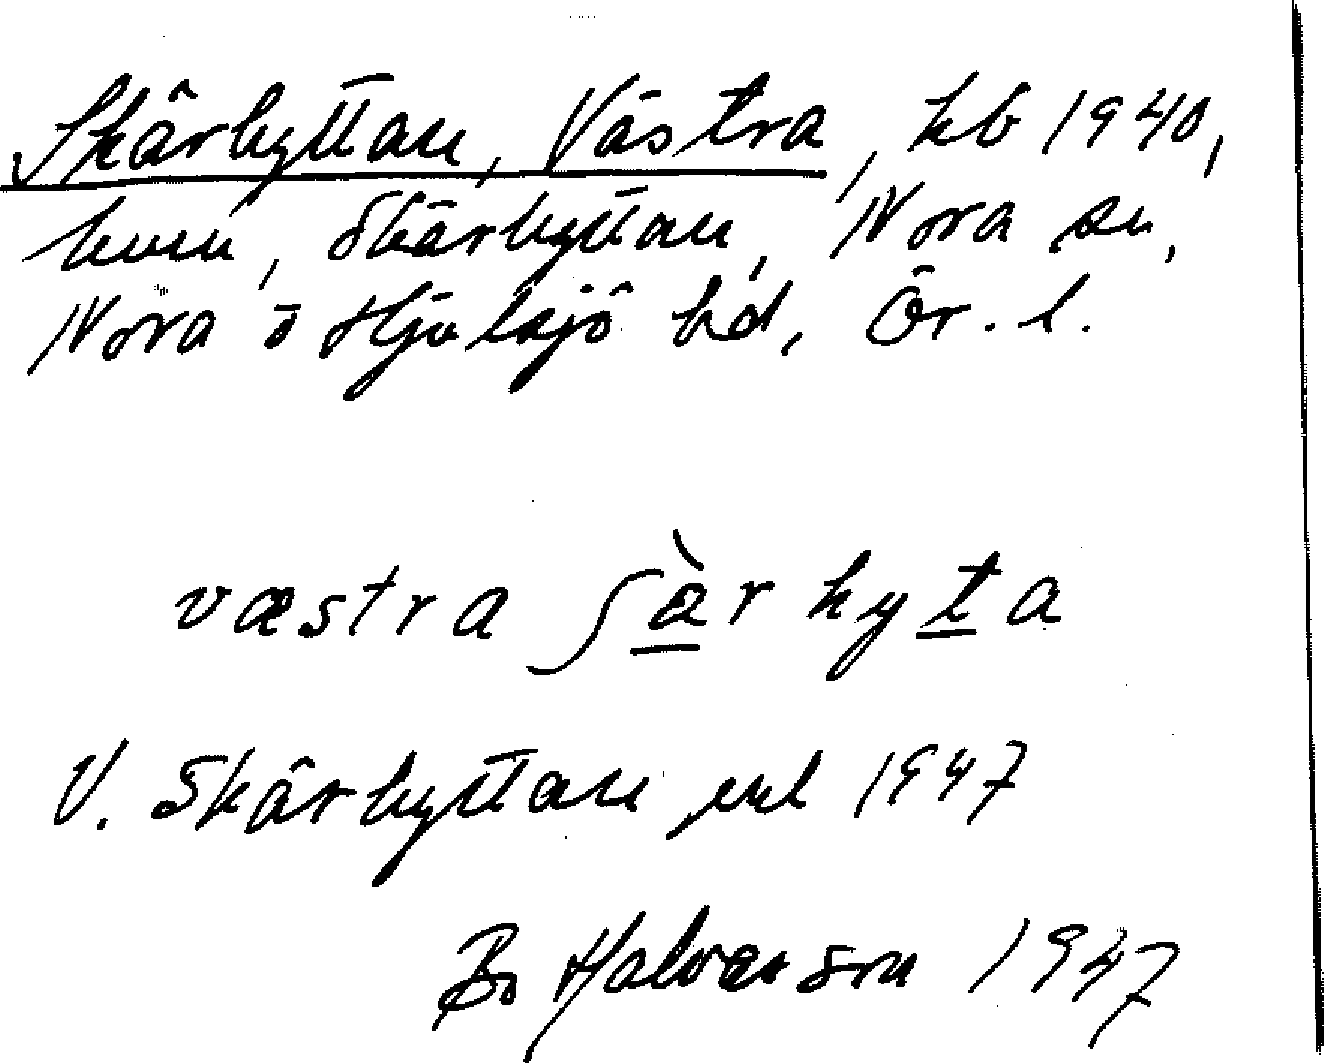 Skärhyttan, Västra, hb 1940,
hmn, Skärhyttan, Nora sn,
Nora o Hjulsjö hd, Ör. l.
væstra ʃæ̀r hyta
V. Skärhyttan jvl 1947
Bo Halvarson 1947